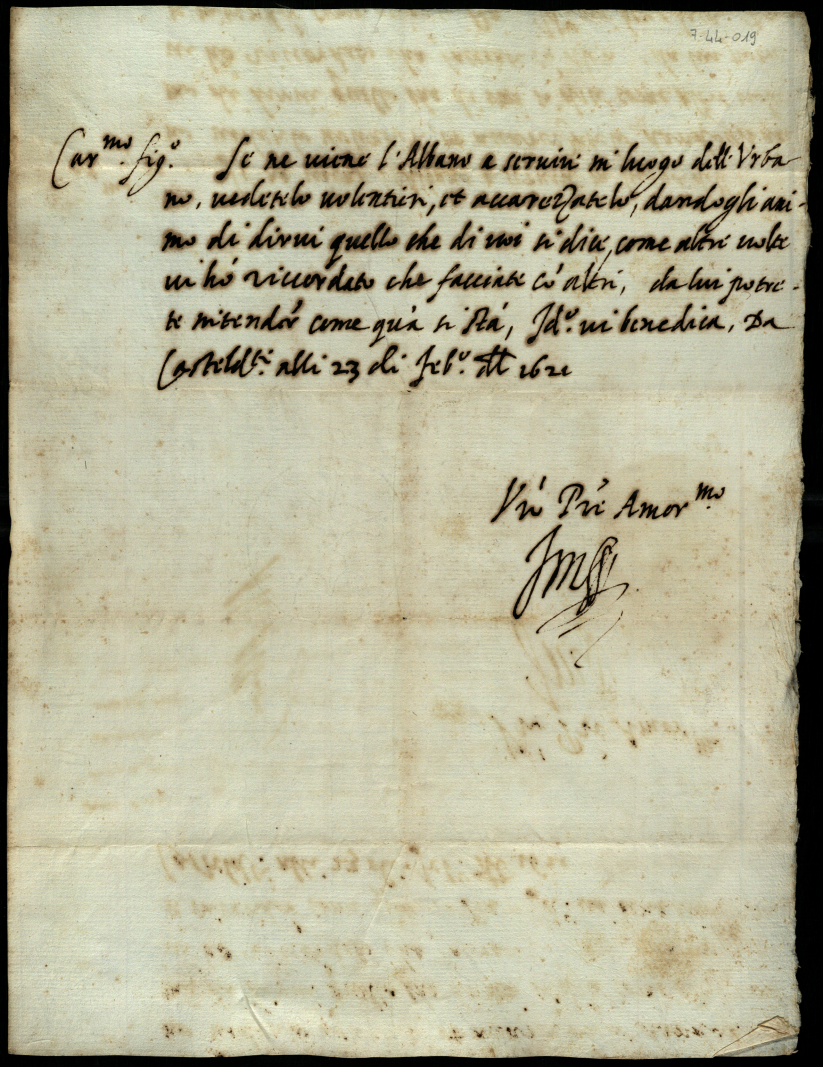 7-44-019
Car.mo fig.o Se ne viene l'Albano a servirvi in luogo dell'Urba
no, vedetelo volentieri, et accarezzatelo, dandogli ani-
mo di dirvi quello che di voi si dice, come altre volte
vi hò riccordato che facciate cõ altri, da lui potre-
te intender come quà si stà, Id.o vi benedica. Da
Casteld.te alli 23 di Feb.o dell 1621
Vrõ Prẽ Amor.mo